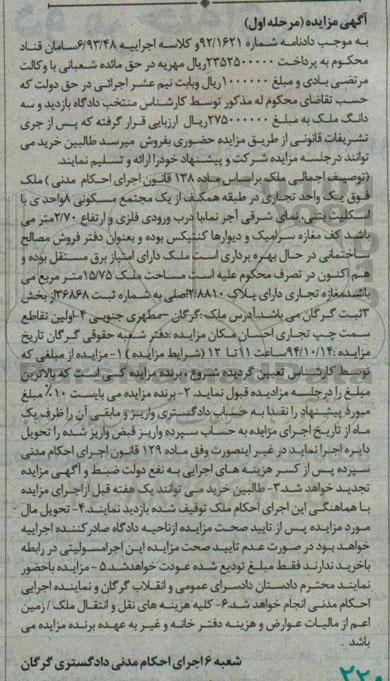 آگهی مزایده (مرحله اول)
به موجب دادنامه شماره ۹۲/۱۶۲۱ و کلاسه اجراییه ۶/۹۳/۴۸سامان قناد
محکوم به پرداخت ۲۳۵۲۵۰۰۰۰۰ریال مهریه در حق مائده شعبانی با وکالت
مرتضی بادی و مبلغ ۱۰۰۰۰۰۰ریال وبابت نیم عشر اجرائی در حق دولت که
حسب تقاضای محکوم له مذکور توسط کارشناس منتخب دادگاه بازدید و سه
دانگ ملک به مبلغ ۲۷۵۰۰۰۰۰۰ریال ارزیابی قرار گرفته که پس از جری
تشریفات قانونی از طریق مزایده حضوری بفروش میرسد طالبین خرید می
توانند درجلسه مزایده شرکت و پیشنهاد خودرا ارائه و تسلیم نمایند.
(توصیف اجمالی ملک براساس ماده ۱۳۸ قانون اجرای احکام مدنی) ملک
فوق یک واحد تجاری در طبقه همکف از یک مجتمع مسکونی ۸واحدی با
اسکلیت بتنی، نمای شرقی آجر نمابا درب ورودی فلزی و ارتفاع ۲/۷۰متر می
باشد. کف مغازه سرامیک و دیوارها کنتیکس بوده و بعنوان دفتر فروش مصالح
ساختمانی در حال بهره برداری است ملک دارای امتیاز برق مستقل بوده و
هم اکنون در تصرف محکوم علیه است مساحت ملک ۱۵/۷۵متر مربع می
باشدمغازه تجاری دارای پلاک ۲/۸۸۱۰اصلی به شماره ثبت ۳۶۸۶۸از بخش
۳ثبت گرگان می باشدآدرس ملک :گرگان –مطهری جنوبی ۴-اولین تقاطع
سمت چپ تجاری احسان مکان مزایده :دفتر شعبه حقوقی گرگان تاریخ
مزایده :۹۴/۱۰/۱۴ساعت ۱۱ تا ۱۲ (شرایط مزایده) ۱-مزایده از مبلغی که
توسط کارشناس تعیین گردیده شروع ، برنده مزایده کسی است که بالاترین
مبلغ را درجلسه مزایده قبول نماید. ۲- برنده مزایده می بایست ۱۰٪ مبلغ
مورد پیشنهاد را نقدا به حساب دادگستری واریز و مابقی آن را ظرف یک
ماه از تاریخ اجرای مزایده به حساب سپرده واریز قبض واریز شده را تحویل
دایره اجرا نماید در غیر اینصورت وفق ماده ۱۲۹ قانون اجرای احکام مدنی
سپرده پس از کسر هزینه های اجرایی به نفع دولت ضبط و آگهی مزایده
تجدید خواهد شد.۳- طالبین خرید می توانند یک هفته قبل ازاجرای مزایده
با هماهنگی این اجرای احکام ملک توقیف شده بازدید نمایند.۴- تحویل مال
مورد مزایده پس از تایید صحت مزایده ازناحیه دادگاه صادرکننده اجراییه
خواهد بود در صورت عدم تایید صحت مزایده این اجرامسولیتی در رابطه
باخرید ندارند فقط مبلغ تودیع شده عودت خواهدشد.۵- مزایده باحضور
نماینده محترم دادستان دادسرای عمومی و انقلاب گرگان و نماینده اجرایی
احکام مدنی انجام خواهد شد.۶- کلیه هزینه های نقل و انتقال ملک /زمین
اعم از مالیات عوارض و هزینه دفتر خانه و غیر به عهده برنده مزایده می
باشد .
شعبه ۶ اجرای احکام مدنی دادگستری گرگان